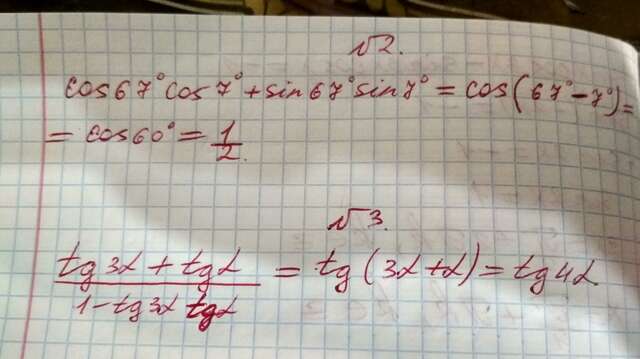 √2.
cos67°cos7°+sin67°sin7°=cos(67°-7°)=
=cos60°=1/2.
√3.
tg3α+tgα/1-tg3α tgα=tg(3α+α)=tg4α.